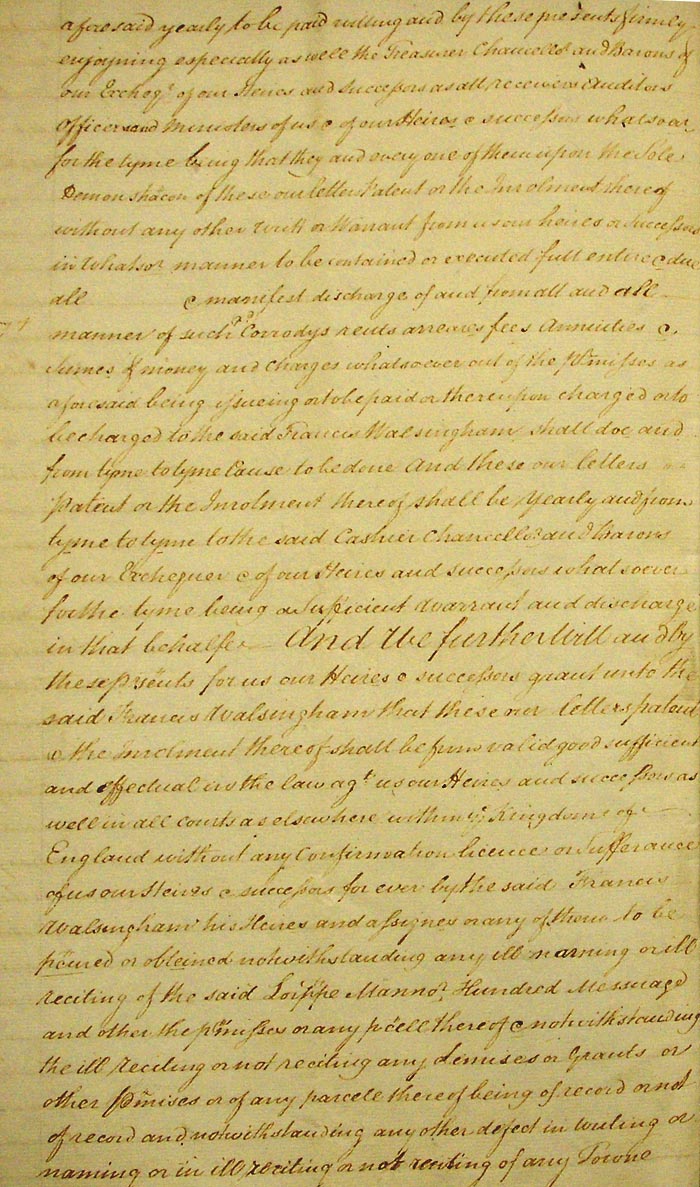 aforesaid yearly to be paid willing and by these presents firmly
enjoyning especially as well the Treasurer Chancello.r and Barons of
our Excheq.r of our Heires and Successors as all receivers Auditors
Officers and Ministers of us & of our Heires & successors whatsoever
for the tyme being that they and every one of them upon the Sole
Demonstracon of these our letter Patent or the Inrolment thereof
without any other Writt or Warrant from us our heires or Successors
in Whatsor manner to be contained or executed full entire & due
all & manifest discharge of and from all and all
manner of such Corrodys rents arreares fees Annuities &
Sumes of money and charges whatsoever out of the p~misses as
aforesaid being issueing or to be paid or thereupon charged or to
be charged to the said Francis Walsingham shall doe and
from tyme to tyme Cause to be done And these our letters
Patent or the Inrolment thereof shall be Yearly and from
tyme to tyme to the said Cashier Chancello.r and Barons
of our Exchequer & of our Heires and successors whatsoever
for the tyme being a Sufficient Warrant and discharge
in that behalfe And We further Will and By
these p~sents for us our Heires & successors grant unto the
said Francis Walsingham that these our letters patent
& the inrolment thereof shall be firm valid good sufficient
and effectual in the law ag.t us our Heires and successors as
well in all courts as elsewhere within y.r Kingdome of
England without any Confirmation licence or Sufferance
of us our Heires & successors for ever by the said Francis
Walsingham his Heires and assignes or any of them to be
p~cured or obteined notwithstanding any ill naming or ill
reciting of the said Lo~ppe Manno.r Hundred Messuage
and other the p~misses or any p~cell thereof & notwithstanding
the ill reciting or not reciting any demises or Grants or
other p~mises or of any parcell thereof being of record or not
of record and notwithstanding any other defect in writing or
naming or in ill reciting or not reciting of any Towne